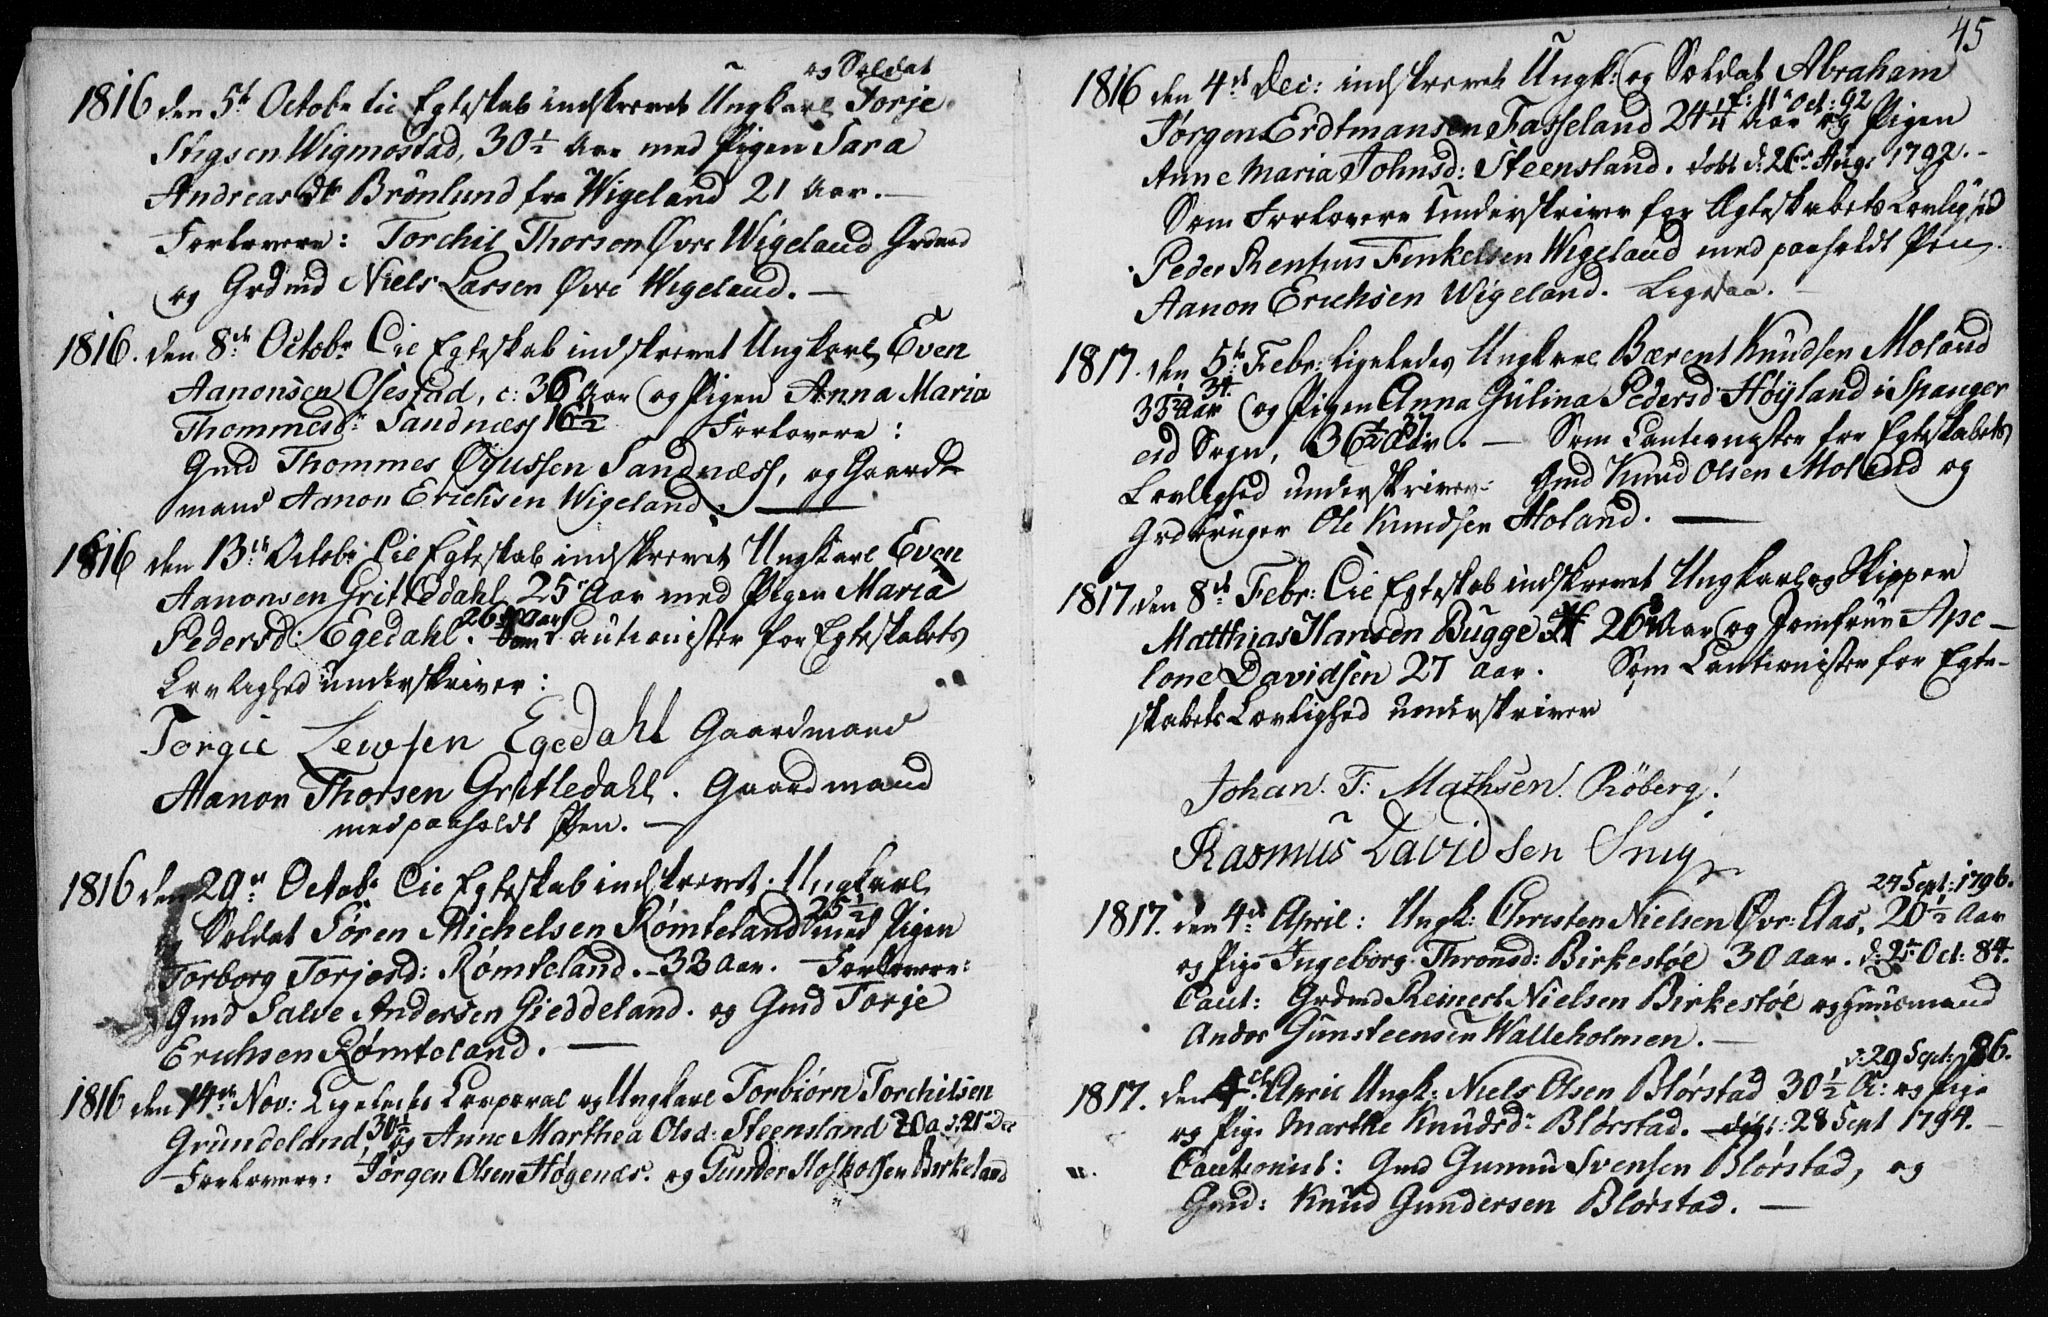 og Soldat
1816 den 5te Octobr til Egteskab indskrevet Ungkarl Torje
Stigsen Wigmostad, 30½ Aar med Pigen Sara
Andreasdr Brönlund fra Wigeland 21 Aar. —
Forlovere: Torchil Thorsen Øvre Wigeland Grdmd
og Grdmd Niels Larsen Øvre Wigeland. —
1816. den 8de Octobr Til Egteskab indskrevet Ungkarl Even
Aanonsen Osestad, c: 36 Aar og Pigen Anna Maria
Thommesdr Sandnæss 16½ Forlovere:
Gmd Thommes Øyussen Sandnæss, og Gaard-
mand Aanon Erichsen Wigeland. —
1816 den 13de Octobr Til Egteskab indskrevet Ungkarl Even
Aanonsen Grittledahl 25 Aar med Pigen Maria
Pedersd: Egedahl. 26 Aar Som Cautionister for Egteskabets
Lovlighed underskriver:
Torgie Lewsen Egedahl Gaardmand
Aanon Thorsen Grittledahl. Gaardmand
med paaholdt Pen. —
1816 den 29de Octobr Til Egteskab indskrevet Ungkarl
Soldat Søren Michelsen Rømteland 25½ med Pigen
Torborg Torjesd: Rømteland. – 33 Aar. Forlovere:
Gmd Salve Andersen Gieddeland. og Gmd Torje
Erichsen Rømteland. —
1816 den 14de Nov: Ligeledes Corporal og Ungkarl Torbiørn Torchilsen
Grundeland, 30½ og Anne Marthea Olsd: Steensland 20 a d: 21 Dec
Forlovere: Jørgen Olsen Høgenæs. og Gunder Birkeland
45
1816 den 4de Dec: indskrevet Ungk: og Soldat Abraham
f: 11 Oct: 92
Jørgen Erdtmansen Fasseland 24¼ Aar og Pigen
Anne Maria Johnsd: Steensland. døbt d: 26 Aug: 1792. –
Som Forlovere underskriver for Ægteskabets Lovlighed
Peder Rentius Fenkelsen Wigeland med paaholdt Pen.
Aanon Erichsen Wigeland. Ligesaa.
1817. den 5te Febr: ligeledes Ungkarl Bærent Knudsen Moland
34.
35 Aar og Pigen Anna Gulina Pedersd Høyland i Spanger
eid Sogn, 36½ Aar. — Som Cautionister for Egteskabets
37
Lovlighed underskriver: Gmd Knud Olsen Moland og
Grdbruger Ole Knudsen Holand. —
1817 den 8de Febr: Til Egteskab indskrevet Ungkarl og Skipper
Matthias Hansen Bugge 26 Aar og Jomfrue Ape-
lone Davidsen 27 Aar. Som Cautionister for Egte-
skabets Lovlighed underskriver
Johan. T: Mathsen. Röberg.
Rasmus Davidsen
24 Sept: 1796.
1817. den 4de April: Ungk: Christen Nielsen Øvr: Aas, 20½ Aar
og Pige Ingeborg Thronsd: Birkestøl 30 Aar. d: 2 Oct: 84.
Caut: Grdmd Reinert Nielsen Birkestøl og Huusmand
Anders Gunsteensen Walleholmen. —
d: 29 Sept: 86.
1817. den 4de April Ungk: Niels Olsen Blørstad 30½ A: og Pige
og Pige Marthe Knudsdr Blørstad. — døbt: 28 Sept 1794. —
Cautionist: Gmd Gunnu Svensen Blørstad, og
Gmd: Knud Gundersen Blørstad. —